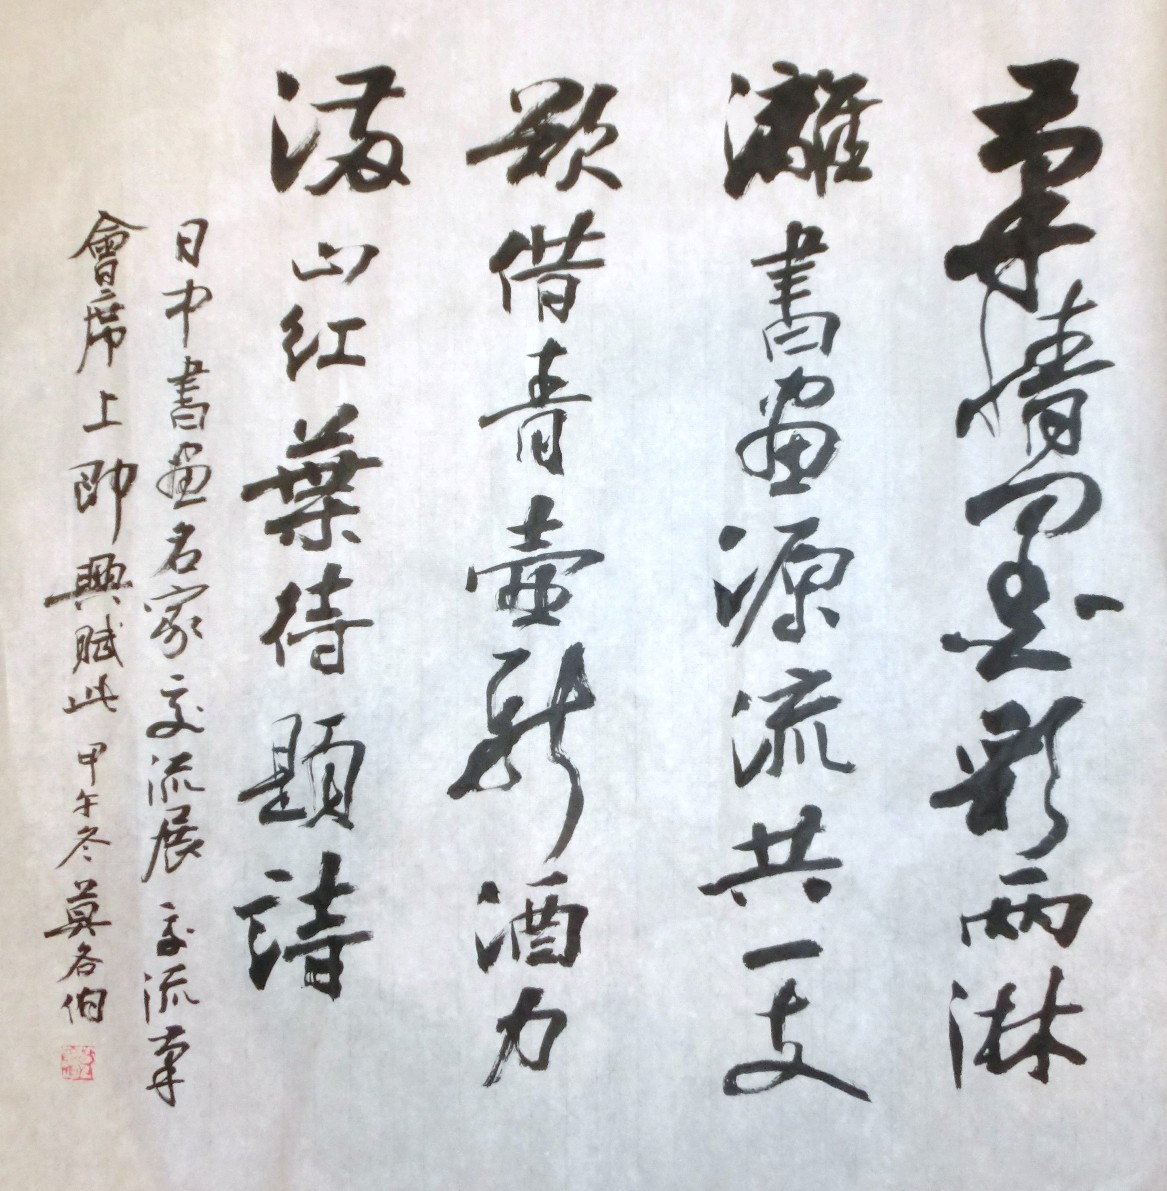 筆情墨彩兩淋
灕書畫源流共一支
歡借青壺新酒力
滿山紅葉待題詩
日中書畫名家交流展交流筆
會席上即興賦此甲午冬莫各伯